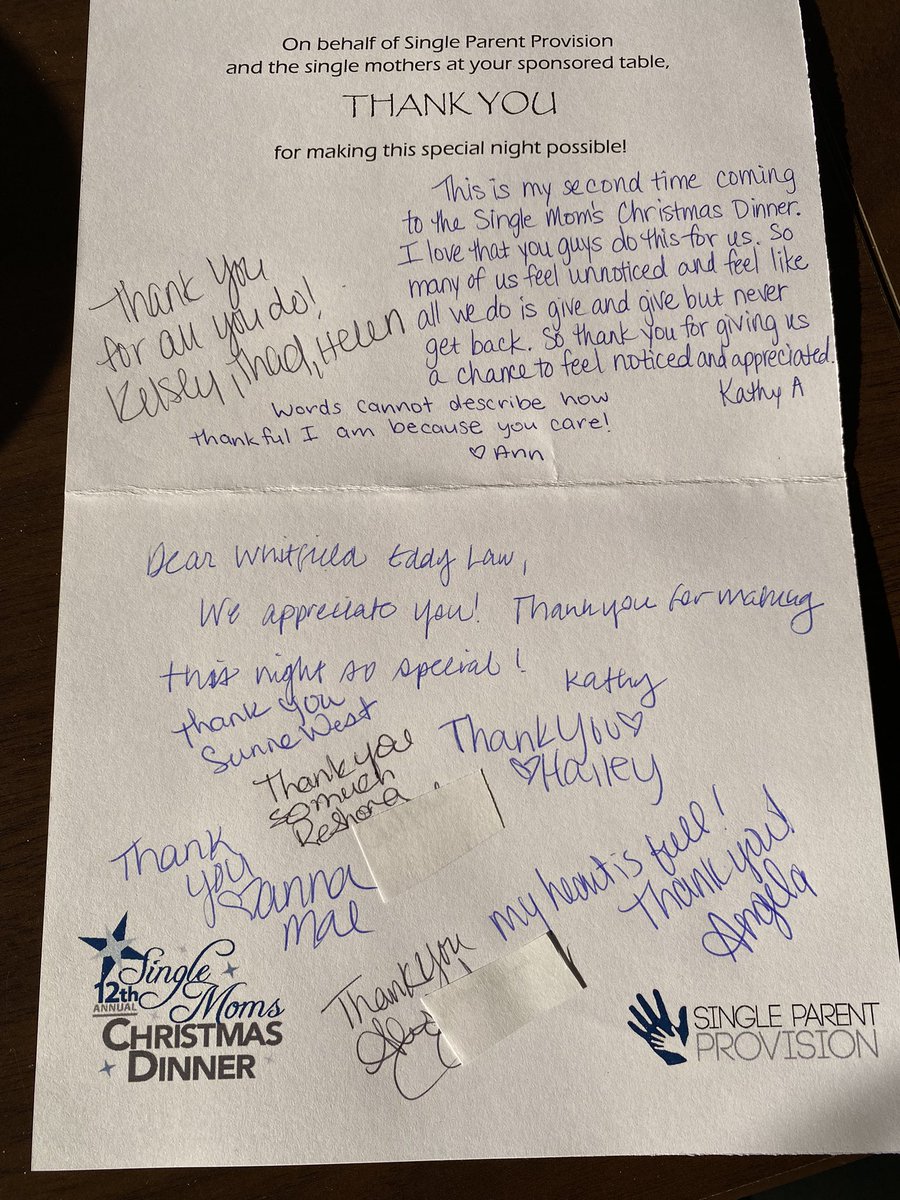 On behalf of Single Parent Provision
and the single mothers at your sponsored table,
THANK YOU
for making this special night possible!
This is my second time coming
to the Single Mom's Christmas Dinner.
I love that you guys do this for us. So
many of us feel unnoticed and feel like
all we do is give and give but never
get back. So thank you for giving us
a chance to feel noticed and appreciated.
Kathy A
Thank you
for all you do!
Kelsey, Thad, Helen
Words cannot describe how
thankful I am because you care!
♡ Ann
Dear Whitfield Eddy Law,
We appreciate you! Thank you for making
this night so special!
Kathy
Thank you
Sunne West
Thank You♡
♡Hailey
Thank you
so much
Reshona
Thank
you
♡anna
mae
my heart is full!
Thank you!
Angela
Thank you
12th
ANNUAL
Single
Moms
CHRISTMAS
DINNER
SINGLE PARENT
PROVISION